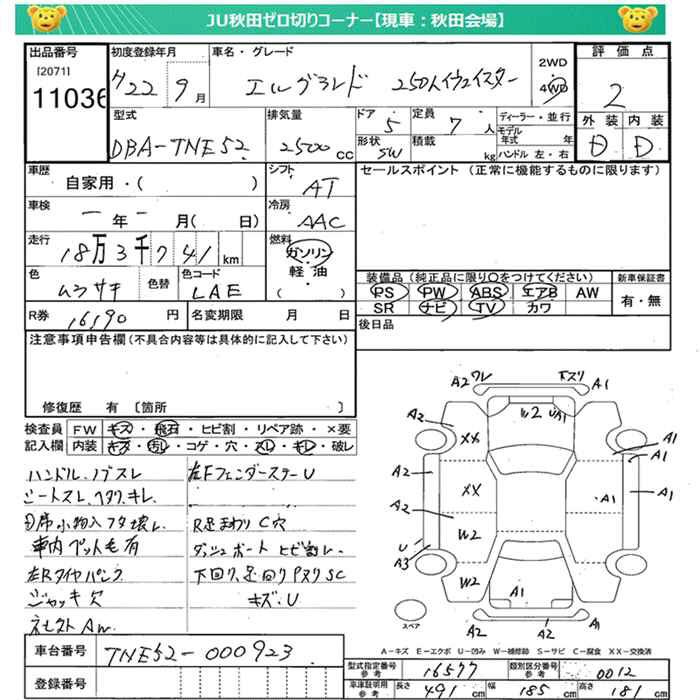 JU秋田ゼロ切りコーナー【現車:秋田会場】
出品番号
[2071]
11036
初度登録年月
22 9月
車名・グレード
エルグランド 250ハイウェイスター
2WD
4WD
評価点
2
外装 内装
D D
型式
DBA-TNE52
排気量
2500 CC
ドア
5
形状
SW
定員
7人
積載
kg
ディーラー・並行
モデル年式 年
ハンドル 左・右
車歴
自家用・( )
シフト
AT
セールスポイント (正常に機能するものに限ります)
車検
ー年ー月( 日)
冷房
AAC
走行
18万3千741km
燃料
ガソリン
軽油
( )
色
ムラサキ
色替
色コード
LAE
装備品(純正品に限り○をつけてください)
PS PW ABS エアB AW
SR ナビ TV カワ
新車保証書
有・無
R券
16190円
名変期限 月 日
後日品
注意事項申告欄(不具合内容等は具体的に記入して下さい)
修復歴 有 〔箇所 〕
検査員記入欄
FW キズ・飛石・ヒビ割・リペア跡・×要
内装 キズ・汚レ・コゲ・穴・スレ・キレ・破レ
ハンドル、ノブスレ
シートスレ、ヘタリ、キレ
D席小物入フタ壊レ
車内ペット毛有
左Rタイヤパンク
ジャッキ欠
左FフェンダーステーU
R足まわりC穴
ダッシュボートヒビ割レ
下回り、足回りPヌリSC
キズ・U
A2 ワレ
下スリ A1
A2
W2 UA1
XX
A1
A1
A2
XX
A1
A1
A2
W2
U
A3
W2
A1
A2
A2
A1
スペア
A-キズ E-エクボ U-凹み W-補修跡 S-サビ C-腐食 XX-交換済
車台番号
TNE52-000923
登録番号
型式指定番号
参考
16577
類別区分番号
参考
0012
車庫証明用
参考
長さ 491cm 幅 185cm 高さ 181cm